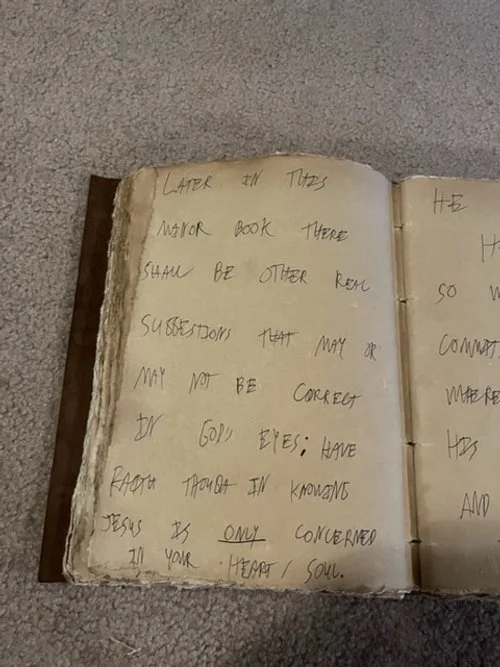 LATER IN THIS
MINOR BOOK THERE
SHALL BE OTHER REAL
SUGGESTIONS THAT MAY OR
MAY NOT BE CORRECT
IN GOD'S EYES; HAVE
FAITH THOUGH IN KNOWING
JESUS IS ONLY CONCERNED
IN YOUR HEART / SOUL.
HE
SO
COMMIT
WHERE
HIS
AND